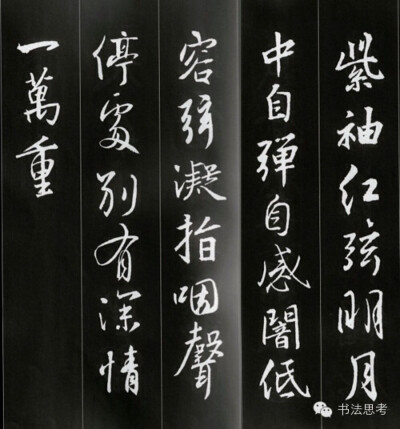 紫袖红弦明月
中自弹自感闇低
容弦凝指咽聲
停處别有深情
一萬重
书法思考